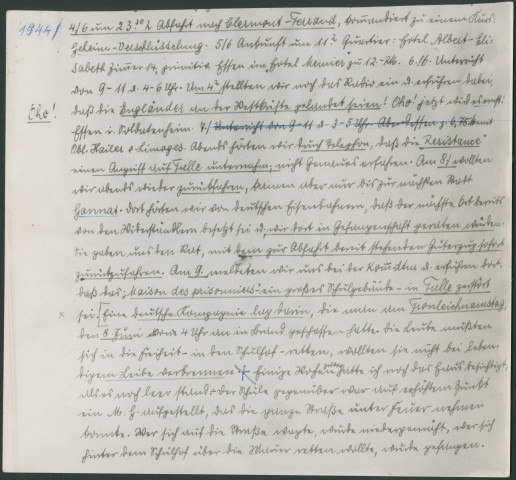 1944/ 4/6 um 23.30 h Abfahrt nach Clermont-Ferrand, kommandiert zu einem Kurs.
Geheim-Verschlüsselung. 5/6 Ankunft um 11 h Quartier: Hotel Albert-Eli-
sabeth Zimmer 14, primitiv Essen im Hotel zu 12 Rb. 6/6. Unterricht
von 9-11 u. 4-6 Uhr. Um 4 h stellten wir noch das Radio ein u. erfuhren dabei,
Oho! daß die Engländer an der Westküste gelandet seien! Oho! jetzt wird es ernst!
Essen i. Soldatenheim. 7/ Unterricht von 9-11 u. 3-5 Uhr. Abendessen z. mit
Obl. Limoges. Abends hörten wir durch Telephon, daß die "Resistance"
einen Angriff auf Tulle unternahm; nicht Genaues erfahren. Am 8/ wollten
wir abends wieder zurückfahren, kamen aber nur bis zur nächsten Stadt
Gannat. Dort hörten wir von deutschen Eisenbahnern, daß der nächste Ort bereits
von den Widerständlern besetzt sei u. wir dort in Gefangenschaft geraten würden.
Sie gaben uns den Rat, mit dem zur Abfahrt bereit stehenden Güterzug sofort
zurückzufahren. Am 9. meldeten wir uns bei der Komdtur u. erfuhren dort,
daß das "maison des prisonniers" ein großes Schulgebäude - in Tulle zerstört
x sei. [Eine deutsche Kompagnie lag darin, die man am Fronleichnamstag,
den 8 Juni von 4 Uhr an in Brand geschossen hatte. Die Leute mußten
sich in die Freiheit - in den Schulhof - retten, wollten sie nicht bei leben-
digem Leibe verbrennen + Einige Wochen später hatte ich noch das Haus besichtigt,
als es noch leer stand. Der Schule gegenüber war auf erhöhtem Punkt
ein M.G. aufgestellt, das die ganze Straße unter Feuer nehmen
konnte. Wer sich auf die Straße wagte, wurde niedergemacht, wer sich
hinter dem Schulhof über die Mauer retten wollte, wurde gefangen.